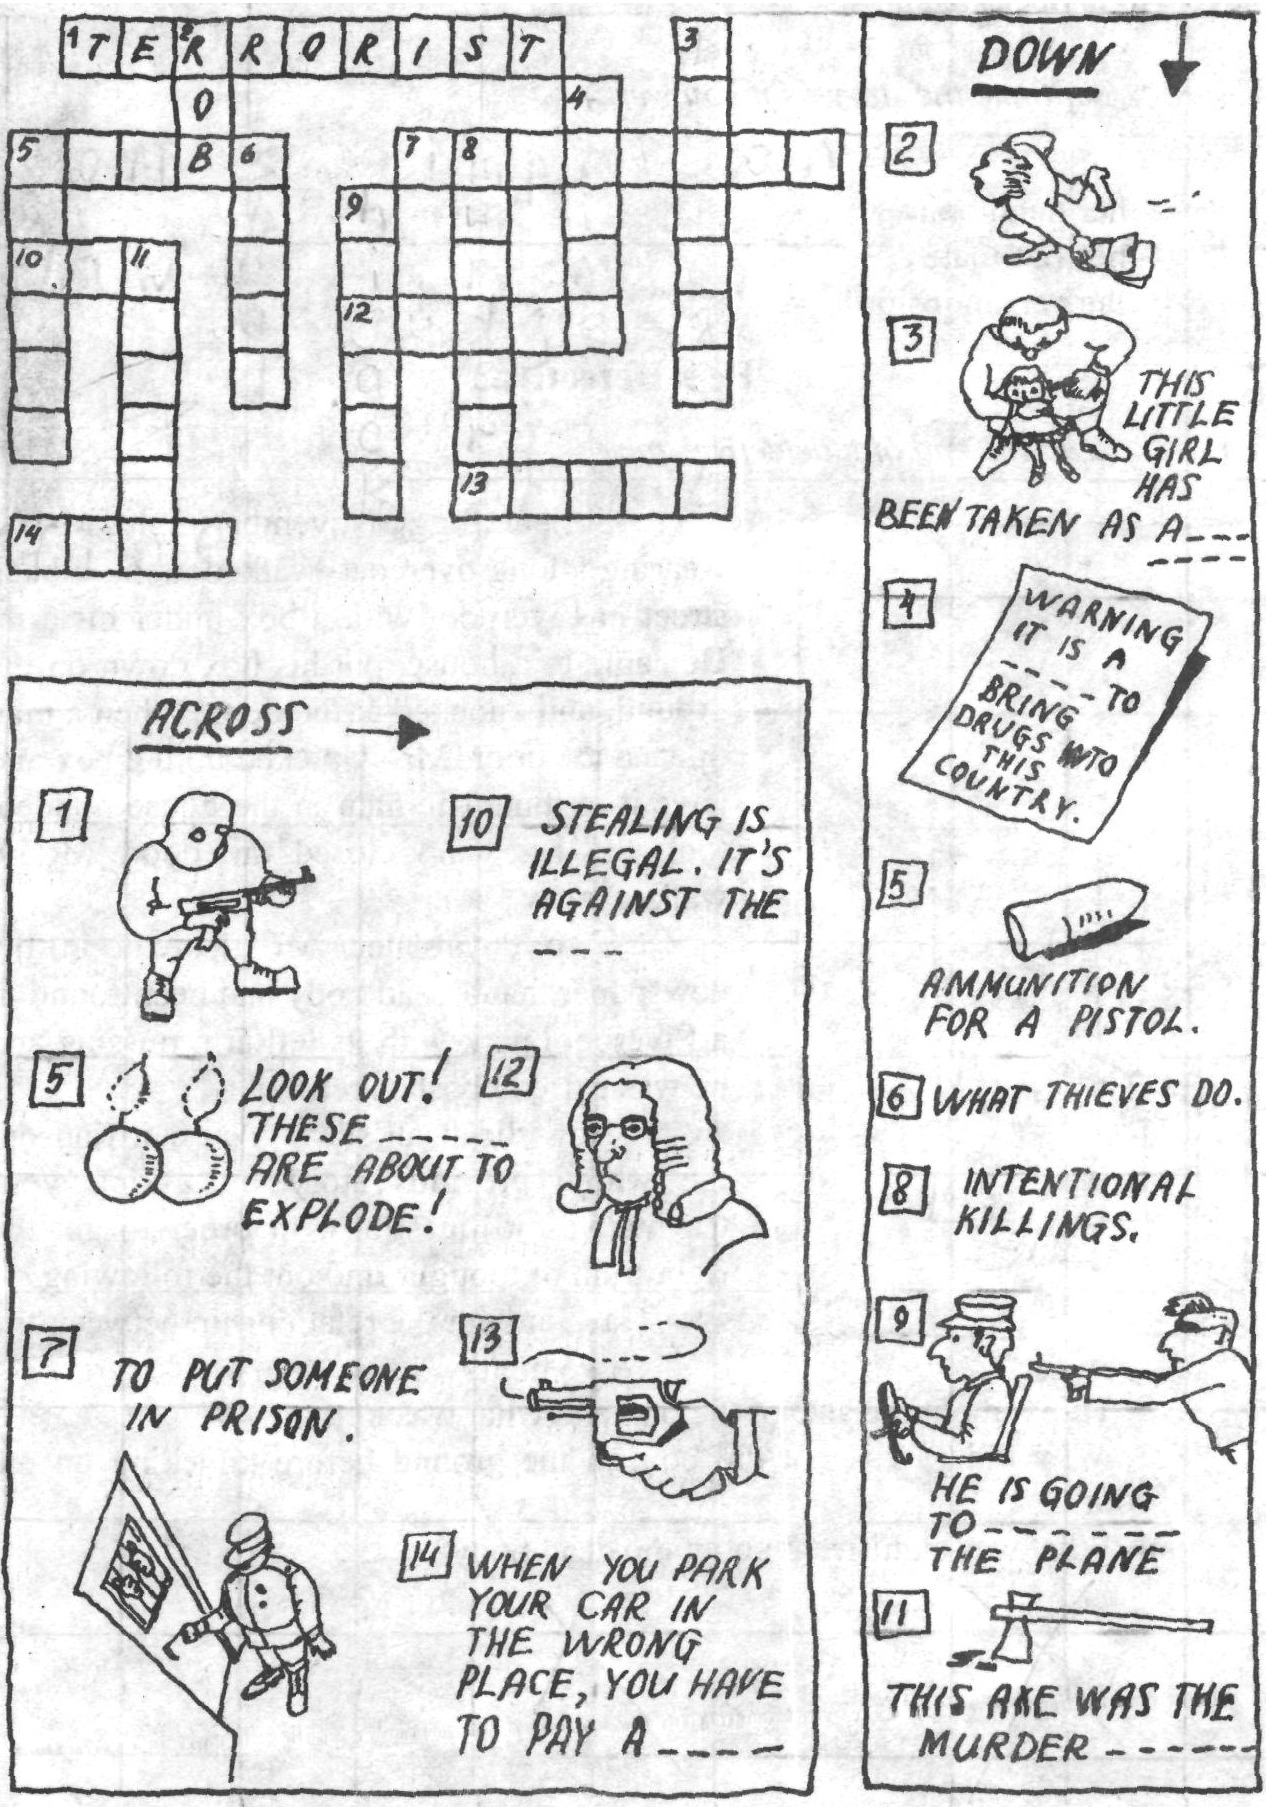 1 T E 2 R R O R I S T
3
O
4
5 B 6
7 8
9
10 11
12
13
14
ACROSS
1
5 LOOK OUT!
THESE _ _ _ _ _
ARE ABOUT TO
EXPLODE!
7
TO PUT SOMEONE
IN PRISON.
10 STEALING IS
ILLEGAL. IT'S
AGAINST THE
_ _ _
12
13
14 WHEN YOU PARK
YOUR CAR IN
THE WRONG
PLACE, YOU HAVE
TO PAY A _ _ _ _
DOWN
2
3
THIS
LITTLE
GIRL
HAS
BEEN TAKEN AS A _ _ _
_ _ _ _
4
WARNING
IT IS A
_ _ _ _ _ TO
BRING
DRUGS INTO
THIS
COUNTRY.
5
AMMUNITION
FOR A PISTOL.
6 WHAT THIEVES DO.
8 INTENTIONAL
KILLINGS.
9
HE IS GOING
TO _ _ _ _ _ _
THE PLANE
11
THIS AXE WAS THE
MURDER _ _ _ _ _ _